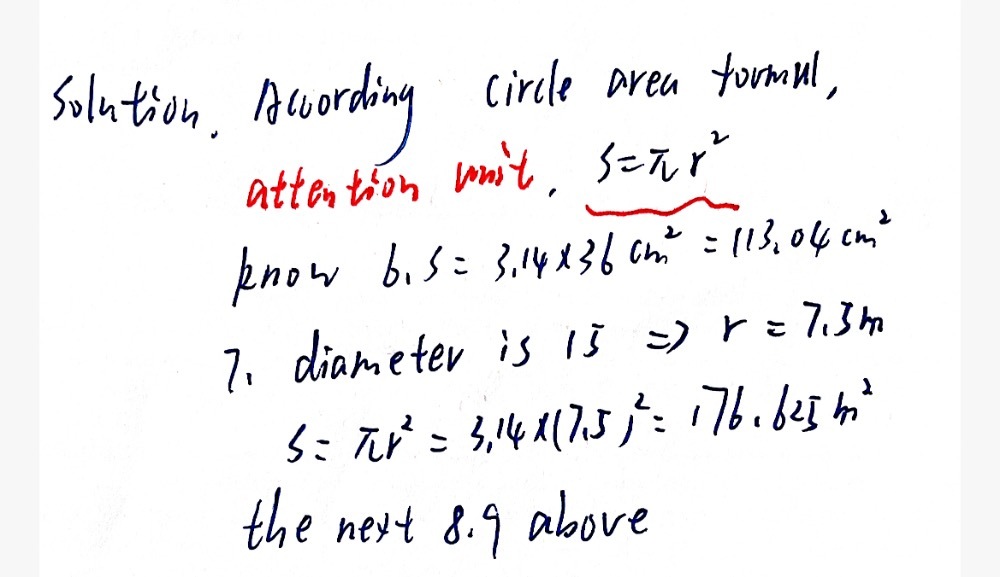 Solution. According circle area formul,
attention unit. S=πr²
know 6. S= 3.14×36 cm² = 113.04 cm²
7. diameter is 15 => r = 7.5m
S= πr² = 3.14×(7.5)²= 176.625 m²
the next 8.9 above